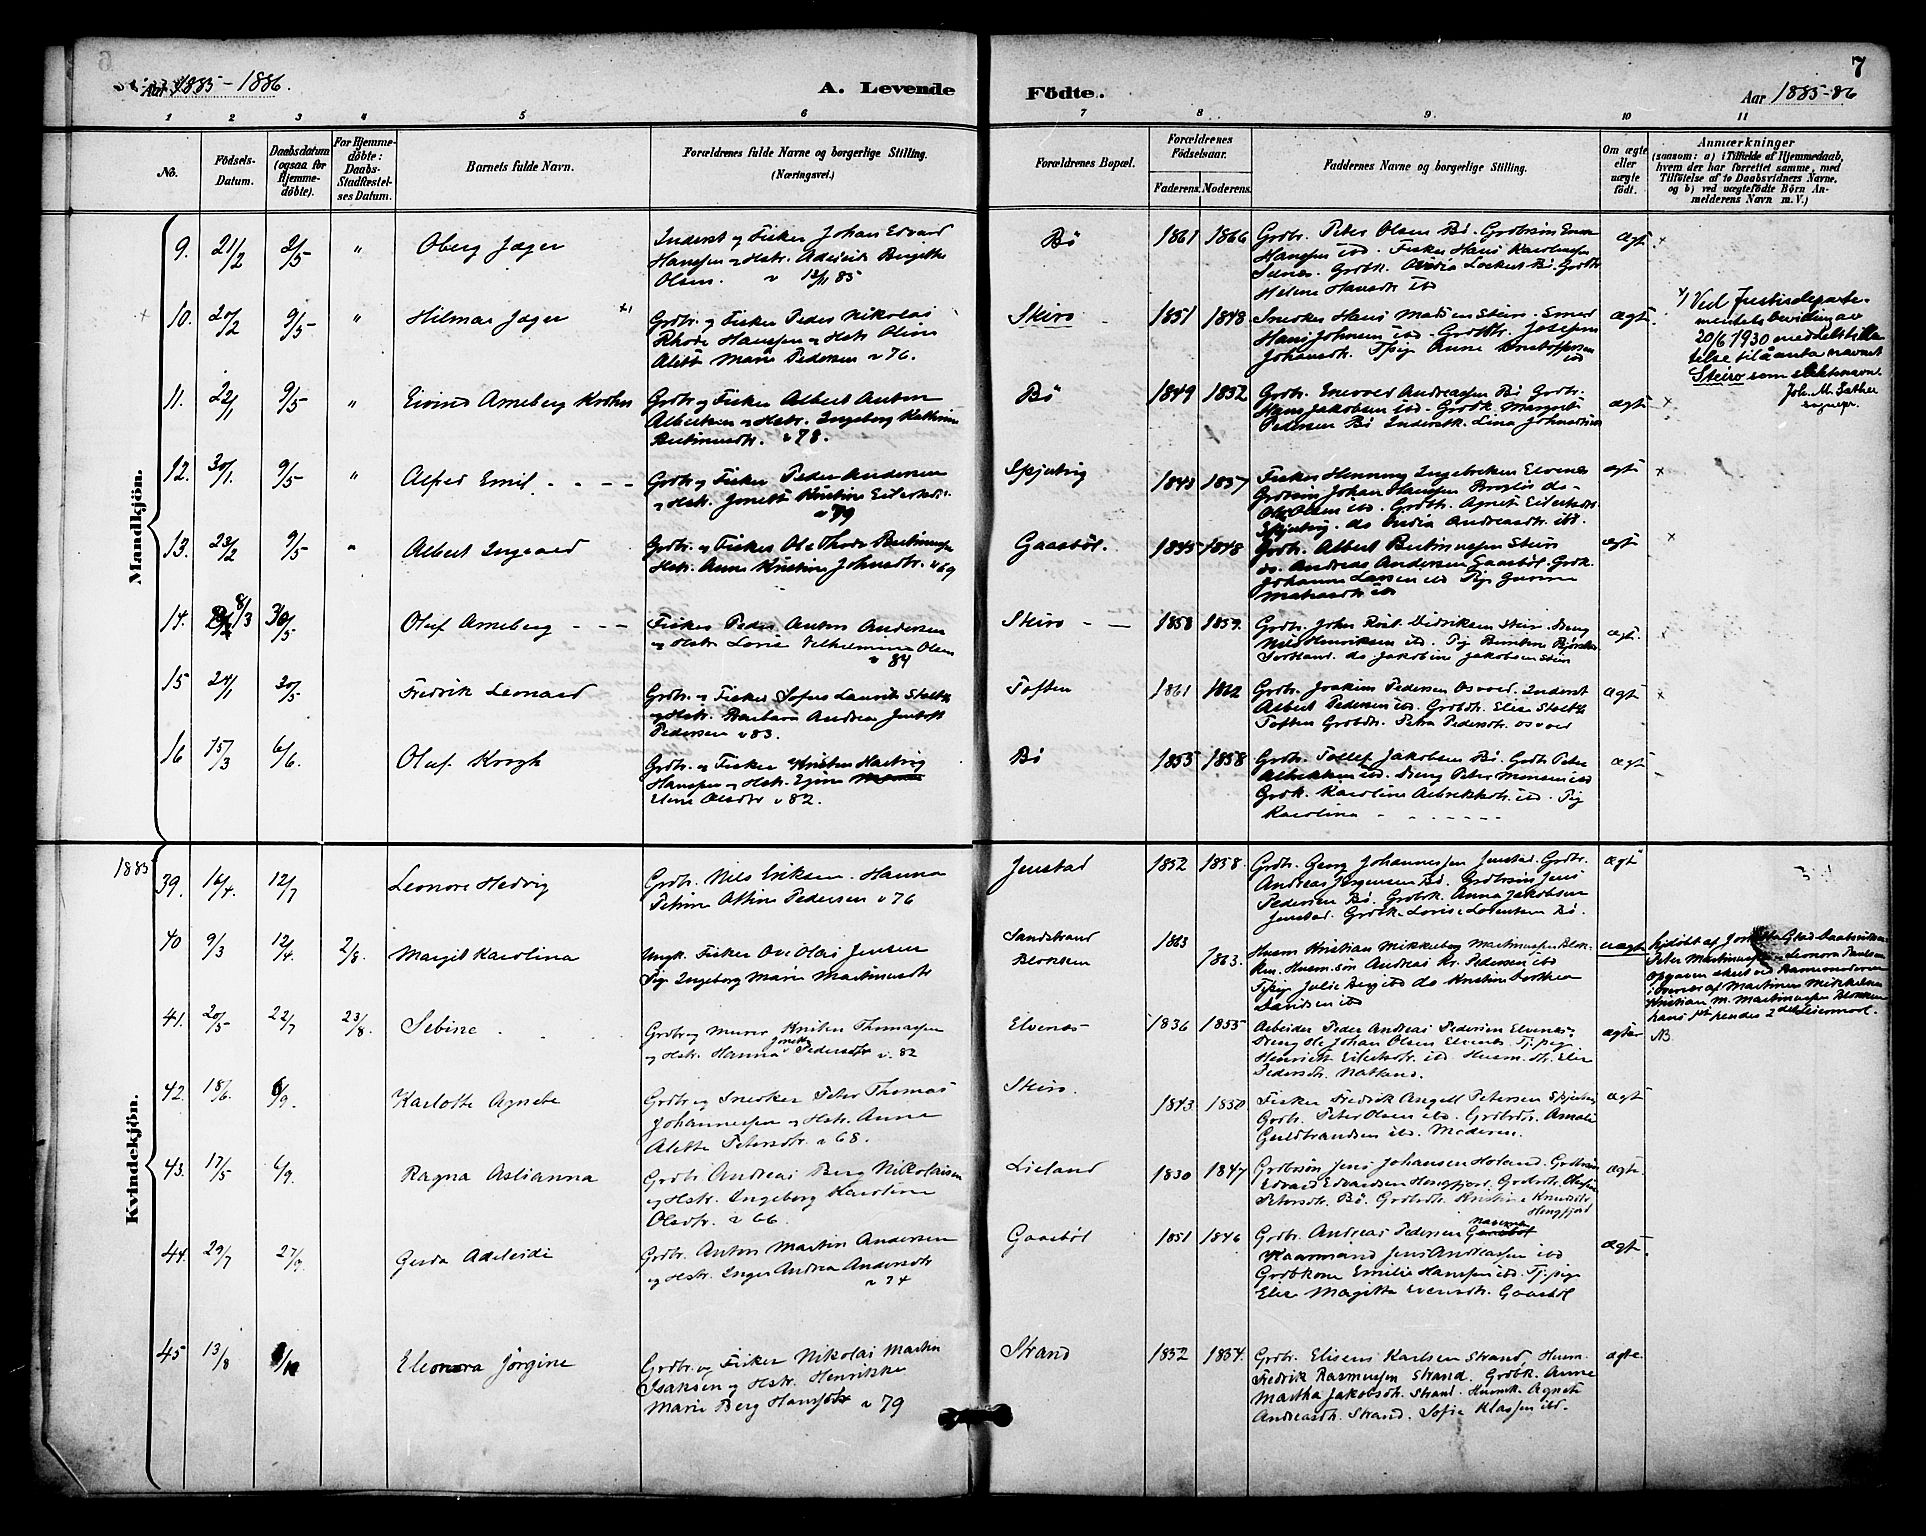 Aar 1885-1886.
A. Levende
Fødte.
Aar 1885-86
7
1 2 3 4 5 6 7 8 9. 10 11
No.
Fødsels-Datum.
Daabsdatum (ogsaa for Hjemmedøbte).
For Hjemmedøbte: Daabs-Stadfæstelses Datum.
Barnets fulde Navn.
Forældrenes fulde Navne og borgerlige Stilling.
(Næringsvei.)
Forældrenes Bopæl.
Forældrenes Fødselsaar.
Faderens. Moderens.
Faddernes Navne og borgerlige Stilling.
Om ægte eller uægte født.
Anmærkninger
(saasom: a) i Tilfælde af Hjemmedaab,
hvem der har forrettet samme, med
Tilføielse af to Daabsvidners Navne,
og b) ved uægtefødte Børn An-
melderens Navn m.V.)
Mandkjøn.
9. 21/2 2/5 " Oberg Jæger
Inderst og Fisker Johan Edvard
Hanssen og Hstr. Adeleide Birgitte
Olsen. v 12/11 85
Bö 1861 1866
Grdbr. Peter Olsen Bö. Grdbrsön
Hanssen ibd. Fisker Hans
Grdbk. Lockert Bö.
Helene Hansdr. ibd
ægt
10. 20/2 9/5 " Hilmar Jæger
Grdbr. og Fisker Peder Nikolai
Rhode Hanssen og Hstr. Oline
Alette Marie Pedersen v 76.
Steiro 1851 1848
Snedker Hans Madsen Steiro.
Hans Johnsen ibd.
Johansdr. Tjpig Anne ibd
ægt.
Ved Justisdeparte-
mentets bevilling av
20/6 1930 meddelt tilla-
telse til å anta navnet
Steiro som slektsnavn.
Joh. M. Sæther
sognepr.
11. 22/1 9/5 " Eivind Arneberg Krohn
Grdbr. og Fisker Albert Anton
Albertsen og Hstr. Ingeborg Kathrine
Bertinusdr. v 78.
Bö 1849 1852
Grdbr. Enevold Andreassen Bö Grdbr.
Hans Jakobsen ibd. Grdbk. Margret
Pedersen Bö Inderstk. Lina
ægt
12. 30/1. 9/5 " Alfred Emil
Grdbr. og Fisker Peder Andersen
og Hstr. Jonette Kristine Eilertsdr.
v 79
1843 1837
Fisker Henning Ingebrigtsen Elvenes
Grdbrsön Johan Hanssen
Olsen ibd. Grdbr. Agnete Eilertsdr.
do Andreasdr. ibd.
ægt
13. 23/2 9/5 " Albert Ingvard
Grdbr. og Fisker Ole Thode Bertinussen
Hstr. Anne Kristine Johnsdtr. v 69
Gaasböl. 1845 1848
Grdbr. Albert Bertinussen Steiro
do. Andreas Andersen Gaasböl. Grdbk.
Johanna Larsen ibd Pige
ægt
14. 8/3 30/5 Oluf Arneberg
Fisker Peder Anton Andersen
og Hstr. Lovise Vilhelmine Olsen
v 84
Steiro 1858 1859.
Grdbr. John Didriksen Steiro. Dreng
Nils Henriksen ibd.
Sortland. do Jakobine Jakobsen Steiro
ægt.
15 24/1 30/5 Fredrik Leonard
Grdbr. og Fisker Sofus Laurik Stoltz
og Hstr. Barbara Andrea Jentoft
Pedersen v 83.
Toften 1861
Grdbr. Joakim Pedersen Osvold. Inderst
Albert Pedersen ibd. Grdbdr. Elise Stoltz
Toften Grdbdr. Petra Pedersdr. Osvold
ægt
16 15/3 6/6. Oluf Krogh
Grdbr. og Fisker Kristen Hartvig
Hanssen og Hstr.
Oline Olsdtr v 82.
Bö 1855 1858
Grdbr. Tollef Jakobsen Bö. Grdb Peter
Albrektsen ibd. Dreng Peter Monsen ibd
Grdbk. Karoline Albrektsdr. ibd. Pig
Karolina
ægt
1885
Kvindekjøn.
39. 16/4. 12/7 Leonore Hedvig
Grdbr. Nils Eriksen. Hanna
Petrine Pedersen v 76
Jenstad 1852 1858.
Grdbr. Georg Johannessen Jenstad. Grdbr.
Andreas Jörgensen Bö. Grdbrsön Jens
Pedersen Bö. Grdbrk. Anna Jakobsen
Jenstad. Grdbk. Lovise Lorentsen Bö.
ægt
40 9/3 12/4. 2/8. Margit Karolina
Ungk. Fisker Ove Olai Jensen
Pig. Ingeborg Marie Martinusdr
Sandstrand
Blokken
1863
1863.
Husm Kristian Mikkeborg Martinussen Blok-
ken. Husm. sön Andreas Kr. Pedersen ibd
Tjpig Julie Berg ibd do Kristine Dorthea
Davidsen ibd
uægt
hjdöbt af
Peter Martinussen Leonora Paulsen
Opgaven skeet ved Barnemoderen
i Overvær af Martinus Mikkelsen
Kristian M. Martinussen Blokken
hans 1ste hendes 2det Leiermaal.
41. 20/5 22/7 23/8. Sebine.
Grdbr og Murer Kristen Thomassen
og Hstr. Hanna Jonette Pedersdtr v. 82
Elvenæs 1836 1855
Arbeider Peder Andreas Pedersen Elvenæs.
Dreng Ole Johan Olsen Elvenes. Tj.pig
Henriette Eilertsdr. ibd. Husm. dr. Elie
Pedersdr. Natland.
ægter
NB
42. 18/6. 6/9. Karlotte Agnete
Grdbr og Snedker Peter Thomas
Johannessen og Hstr. Anna
Alette Petersdtr. v 68.
Steiro. 1843. 1850
Fisker Fredrik Angell Petersen
Grdbr. Peter Olsen ibd. Grdbrdtr. Amalie
Guldbrandsen ibd. Moderen.
ægt
43. 17/5 6/9. Ragna Aslianna
Grdbr. Andreas Berg Nikolaisen
og Hstr. Ingeborg Karoline
Olsdtr. v 66.
Lieland 1830 1847
Grdbrsön Jens Johansen Holand. Grdbrsön
Edvard Edvardsen Hongfjord. Grdbrdr.
Petersdtr. Bö. Grdbrdtr. Kristine Knudsdtr.
Hongfjord
ægte.
44. 29/7 27/9. Gerda Adeleide
Grdbr. Anton Martin Andersen
og Hstr. Inger Andrea Andersdtr
v 74
Gaasböl 1851 1846
Grdbr. Andreas Pedersen
Kaarmand Jens Andreassen ibd
Grdbkone Emilie Hanssen ibd. Tj.pige
Elie Magitta Evensdr. Gaasböl
ægt.
45 13/8 /10 Eleonora Jörgine
Grdbr. og Fisker Nikolai Martin
Isaksen og Hstr. Henrikke
Marie Berg Hansdtr v 79
Strand 1852 1854.
Grdbr. Elisens Karlsen Strand, Husm.
Fredrik Rasmussen Strand. Grdbk. Anne
Martha Jakobsdr. Strand. Husmk. Agnete
Andreasdr. Strand. Sofie Klassen ibd.
ægte.